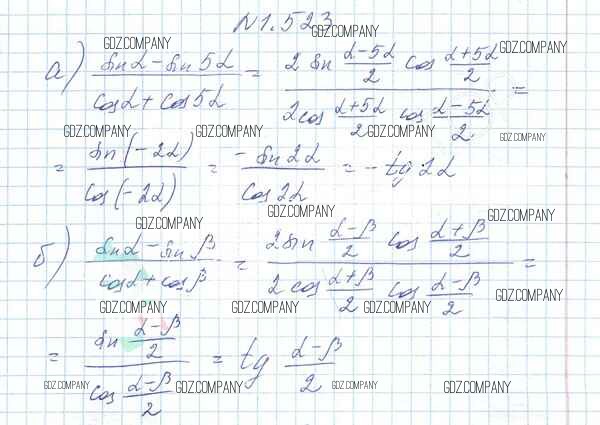 N 1.523
GDZ.COMPANY GDZ.COMPANY GDZ.COMPANY
а) (sin α − sin 5α)/(cos α + cos 5α) = (2 sin (α−5α)/2 cos (α+5α)/2)/(2 cos (α+5α)/2 cos (α−5α)/2) =
GDZ.COMPANY GDZ.COMPANY GDZ.COMPANY GDZ.COMPANY
= sin(−2α)/cos(−2α) = −sin 2α/cos 2α = −tg 2α
GDZ.COMPANY GDZ.COMPANY GDZ.COMPANY
б) (sin α − sin β)/(cos α + cos β) = (2 sin (α−β)/2 cos (α+β)/2)/(2 cos (α+β)/2 cos (α−β)/2) =
GDZ.COMPANY GDZ.COMPANY GDZ.COMPANY GDZ.COMPANY
= (sin (α−β)/2)/(cos (α−β)/2) = tg (α−β)/2
GDZ.COMPANY GDZ.COMPANY GDZ.COMPANY GDZ.COMPANY